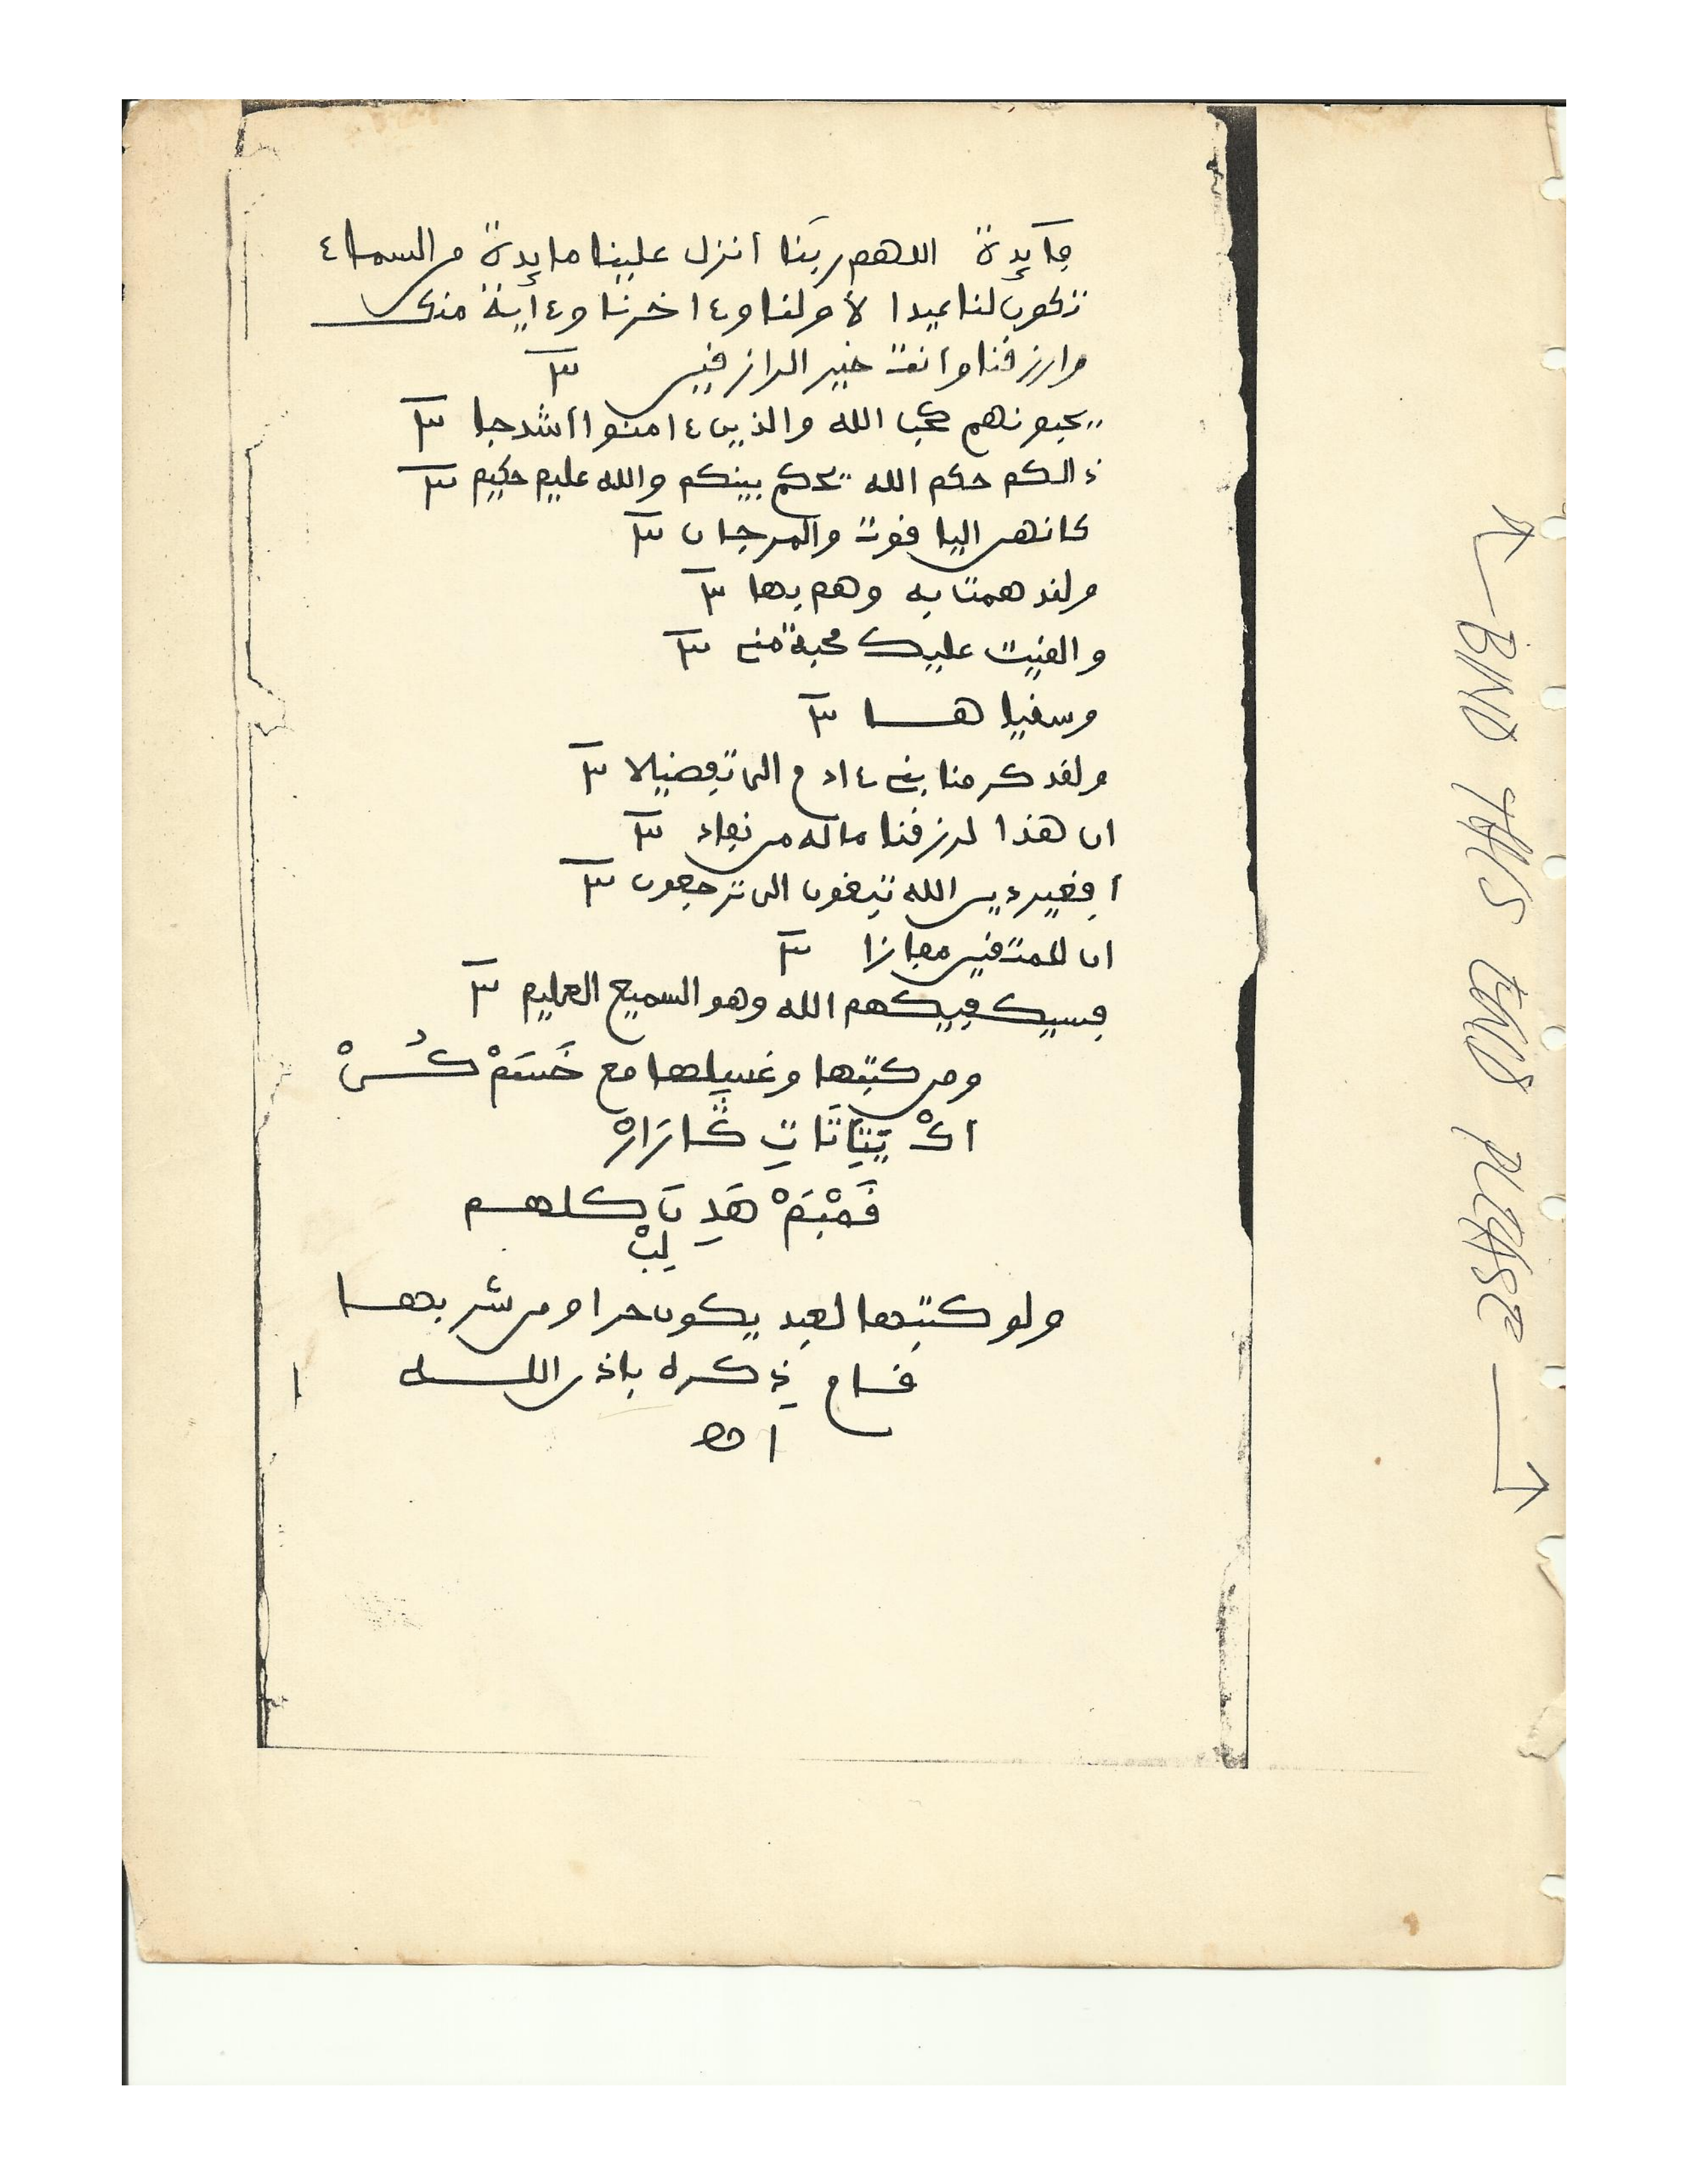 فآيدة اللهم ربنا أنزل علينا مايدة من السماء
تكون لنا عيدا لأولنا وءاخرنا وءاية منك
وارزقنا وأنت خير الرازقين ٣
يحبونهم كحب الله والذين ءامنوا أشد حبا ٣
ذالكم حكم الله يحكم بينكم والله عليم حكيم ٣
كانهن الياقوت والمرجان ٣
ولقد همت به وهم بها ٣
والقيت عليك محبة مني ٣
وسقياها ٣
ولقد كرمنا بني ءادم الى تفضيلا ٣
ان هذا لرزقنا ماله من نفاد ٣
أفغير دين الله تبغون الى ترجعون ٣
ان للمتقين مفازا ٣
فسيكفيكهم الله وهو السميع العليم ٣
ومن كتبها وغسلها مع
كلهم
ولو كتبها لعبد يكون حرا ومن شربها
قام ذكره باذن الله
اهـ
BIND THIS END PLEASE